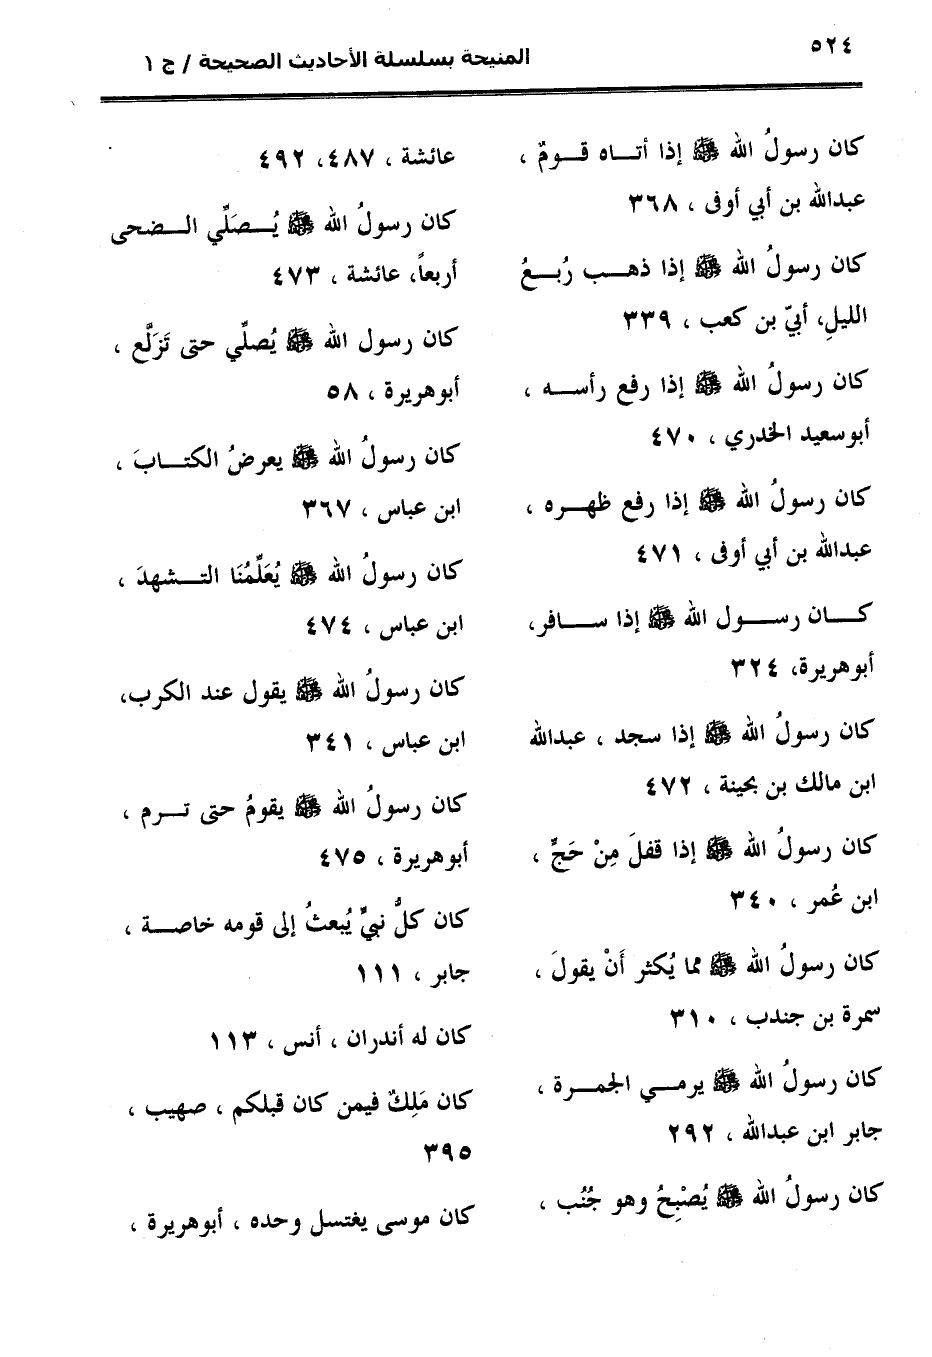 ٥٢٤
المنيحة بسلسلة الأحاديث الصحيحة / ج ١
كان رسولُ الله ﷺ إذا أتـــاه قـــومٌ ،
عبدالله بن أبي أوفى ، ٣٦٨
كان رسولُ الله ﷺ إذا ذهـــب رُبـــعُ
الليلِ، أبيّ بن كعب ، ٣٣٩
كان رسولُ الله ﷺ إذا رفع رأســـه ،
أبوسعيد الخدري ، ٤٧٠
كان رسولُ الله ﷺ إذا رفع ظهـــره ،
عبدالله بن أبي أوفى ، ٤٧١
كـــان رســـول الله ﷺ إذا ســـافر،
أبوهريرة، ٣٢٤
كان رسولُ الله ﷺ إذا سجد ، عبدالله
ابن مالك بن بحينة ، ٤٧٢
كان رسولُ الله ﷺ إذا قفلَ مِنْ حَجٍّ ،
ابن عُمر ، ٣٤٠
كان رسولُ الله ﷺ مما يُكثر أَنْ يقولَ ،
سمرة بن جندب ، ٣١٠
كان رسولُ الله ﷺ يرمـــي الجمـــرة ،
جابر ابن عبدالله ، ٢٩٢
كان رسولُ الله ﷺ يُصْبِحُ وهو جُنُب ،
عائشة ، ٤٨٧، ٤٩٢
كان رسولُ الله ﷺ يُـــصَلِّي الـــضحى
أربعاً، عائشة ، ٤٧٣
كان رسول الله ﷺ يُصلِّي حتى تَزَلَّع ،
أبوهريرة ، ٥٨
كان رسولُ الله ﷺ يعرضُ الكتـــابَ ،
ابن عباس ، ٣٦٧
كان رسولُ الله ﷺ يُعَلِّمُنَا التـــشهدَ ،
ابن عباس ، ٤٧٤
كان رسولُ الله ﷺ يقول عند الكرب،
ابن عباس ، ٣٤١
كان رسولُ الله ﷺ يقومُ حتى تـــرم ،
أبوهريرة ، ٤٧٥
كان كلُّ نبيٍّ يُبعثُ إلى قومه خاصـــة ،
جابر ، ١١١
كان له أندران ، أنس ، ١١٣
كان مَلِكٌ فيمن كان قبلكم ، صهيب ،
٣٩٥
كان موسى يغتسل وحده ، أبوهريرة ،